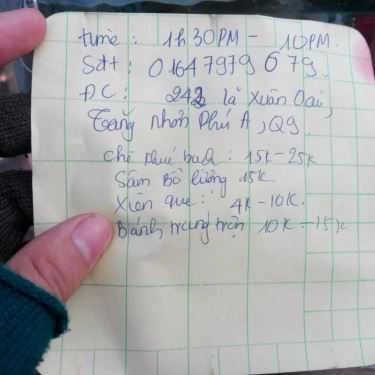 time: 1h30PM - 10PM.
Sđt: 01647979679.
ĐC: 242 lã Xuân Oai,
Tăng nhơn Phú A, Q9.
chè khúc bạch: 15k-25k
Sâm bổ lường 15k
Xiên que: 4k-10k.
Bánh tráng trộn 10k-15k